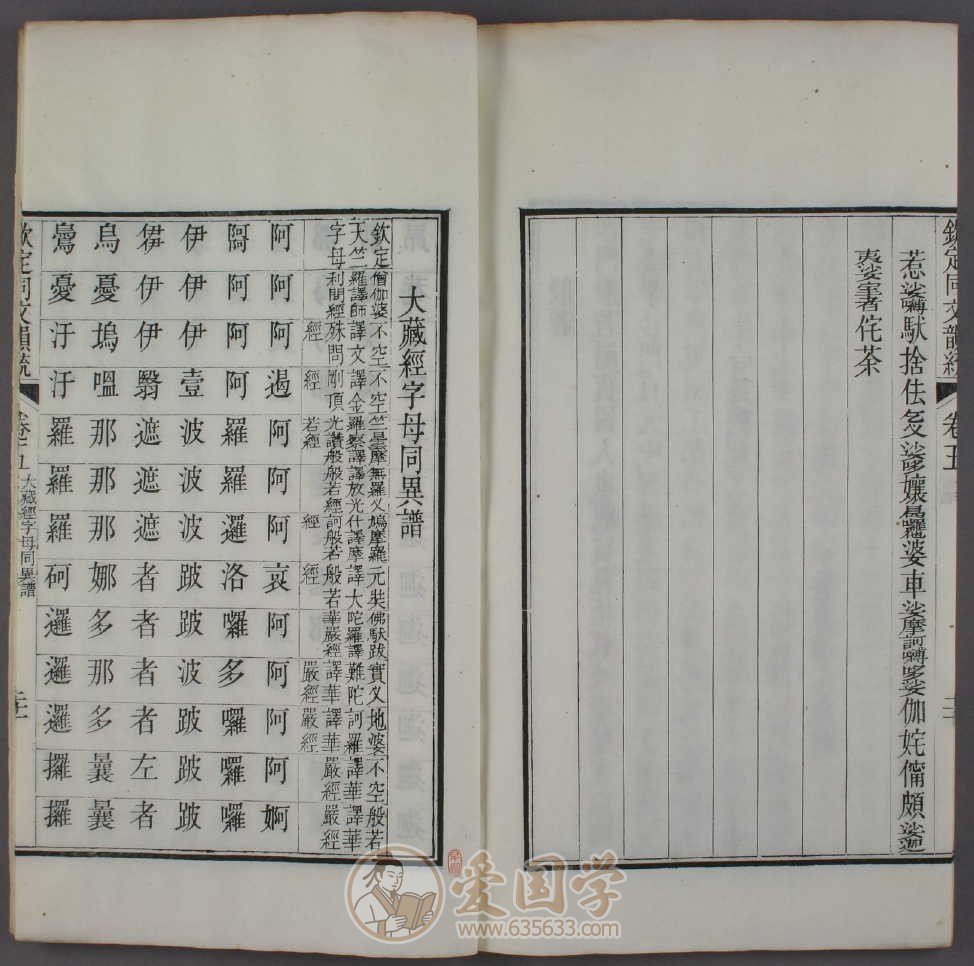 欽定同文韻統 卷五
惹娑嚩馱捨佉叉娑哆孃曷攞婆車娑摩訶嚩哆娑伽姹儞頗娑迦
夷娑室者侘茶
大藏經字母同異譜
欽定天竺字母
僧伽婆羅譯師利問經
不空譯文殊問經
不空譯金剛頂經
竺曇摩羅察譯光讚般若經
無羅叉譯放光般若經
鳩摩羅什譯摩訶般若經
元奘譯大般若經
佛馱跋陀羅譯華嚴經
實叉難陀譯華嚴經
地婆訶羅譯華嚴經
不空譯華嚴經
般若譯華嚴經
阿 阿 阿 遏 阿 阿 阿 哀 阿 阿 阿 阿 婀
阿 阿 阿 羅 羅 邏 洛 囉 多 囉 囉 囉
伊 伊 伊 壹 波 波 波 跛 跛 波 跛 跛 跛
伊 伊 翳 遮 遮 遮 者 者 者 者 左 者
烏 憂 塢 嗢 那 那 那 娜 多 那 多 曩 曩
憂 汙 汙 羅 羅 羅 砢 邏 邏 邏 攞 攞
欽定同文韻統 卷五 大藏經字母同異譜
爱国学
www.635633.com